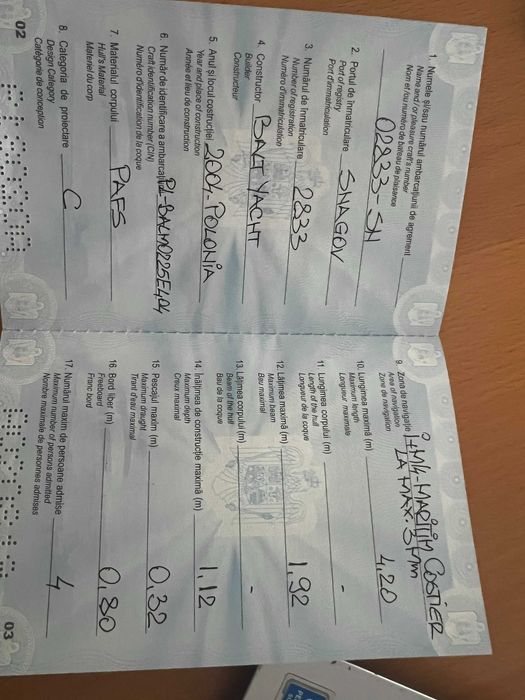 1. Numele și/sau numărul ambarcațiunii de agrement
Name and / or pleasure craft's number
Nom et /ou numéro de bateau de plaisance
02833-SN
2. Portul de înmatriculare SNAGOV
Port of registry
Port d'immatriculation
3. Numărul de înmatriculare 2833
Number of registration
Numéro d'immatriculation
4. Constructor BALT YACHT
Builder
Constructeur
5. Anul și locul costrucției 2004-POLONIA
Year and place of construction
Année et lieu de construction
6. Număr de identificare a ambarcațiunii
Craft identification number (CIN)
Numéro d'identification de la coque
7. Materialul corpului PAFS
Hull's Material
Materiel du corp
8. Categoria de proiectare C
Design Category
Catégorie de conception
02
9. Zona de navigație MARITIM COSTIER
Area of navigation LA MAX. 3 Mm
Zone de navigation
10. Lungimea maximă (m) 4,20
Maximum length
Longueur maximale
11. Lungimea corpului (m) -
Length of the hull
Longueur de la coque
12. Lățimea maximă (m) 1,92
Maximum beam
Bau maximal
13. Lățimea corpului (m) -
Beam of the hull
Bau de la coque
14. Înălțimea de construcție maximă (m) 1,12
Maximum depth
Creux maximal
15 Pescajul maxim (m) 0,32
Maximum draught
Tirant d'eau maximal
16 Bord liber (m) 0,80
Freeboard
Franc bord
17. Numărul maxim de persoane admise 4
Maximum number of persons admitted
Nombre maximale de personnes admises
03